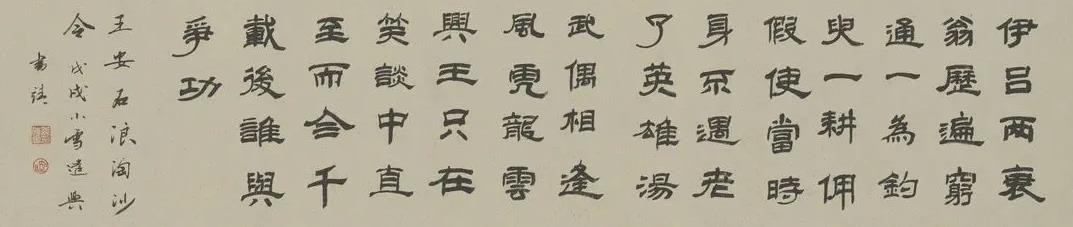 伊呂兩衰
翁歷遍窮
通一為釣
叟一耕佣
假使當時
身不遇老
了英雄湯
武偶相逢
風虎龍雲
興王只在
笑談中直
至而今千
載後誰與
爭功
王安石浪淘沙
令 戊戌小雪遣興